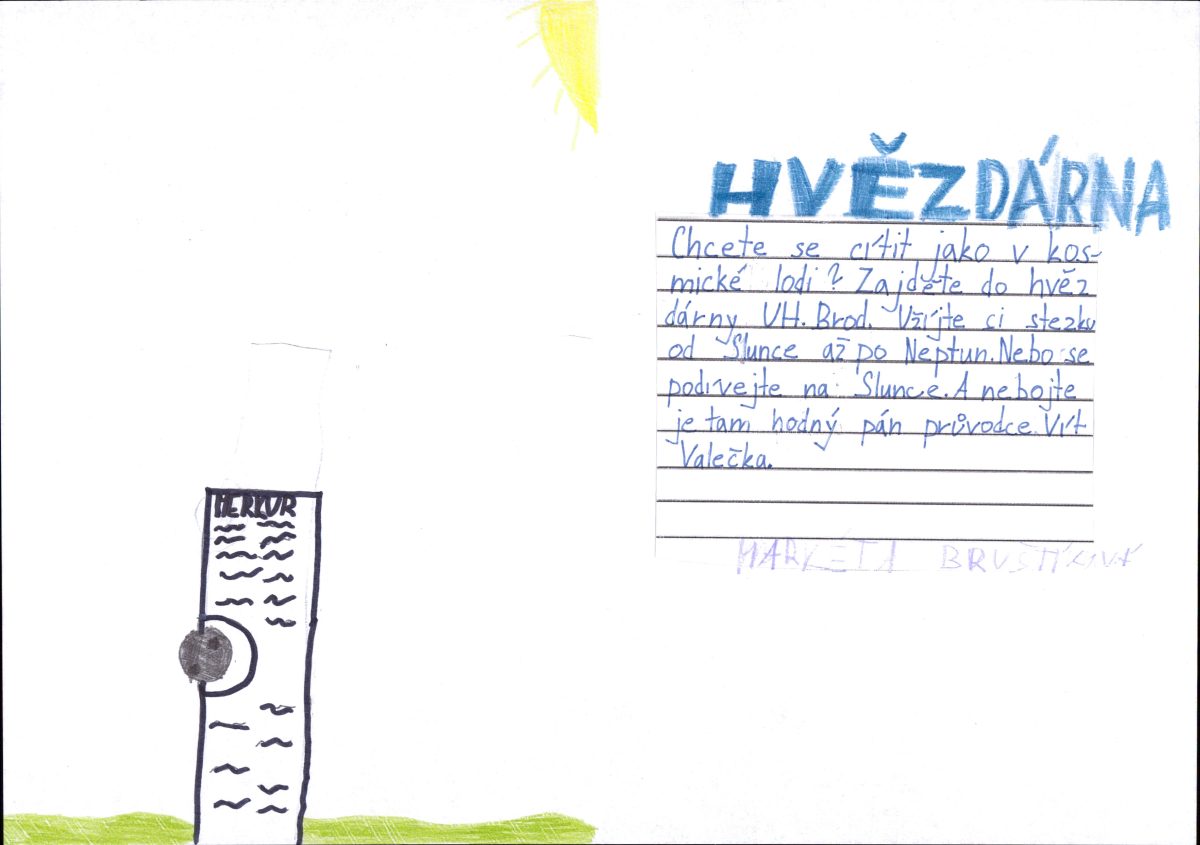 HVĚZDÁRNA
Chcete se cítit jako v kos-
mické lodi? Zajděte do hvěz
dárny UH. Brod. Užijte ci stezku
od Slunce až po Neptun. Nebo se
podívejte na Slunce. A nebojte
je tam hodný pán průvodce Vít
Valečka.
MARKÉTA
MERKUR